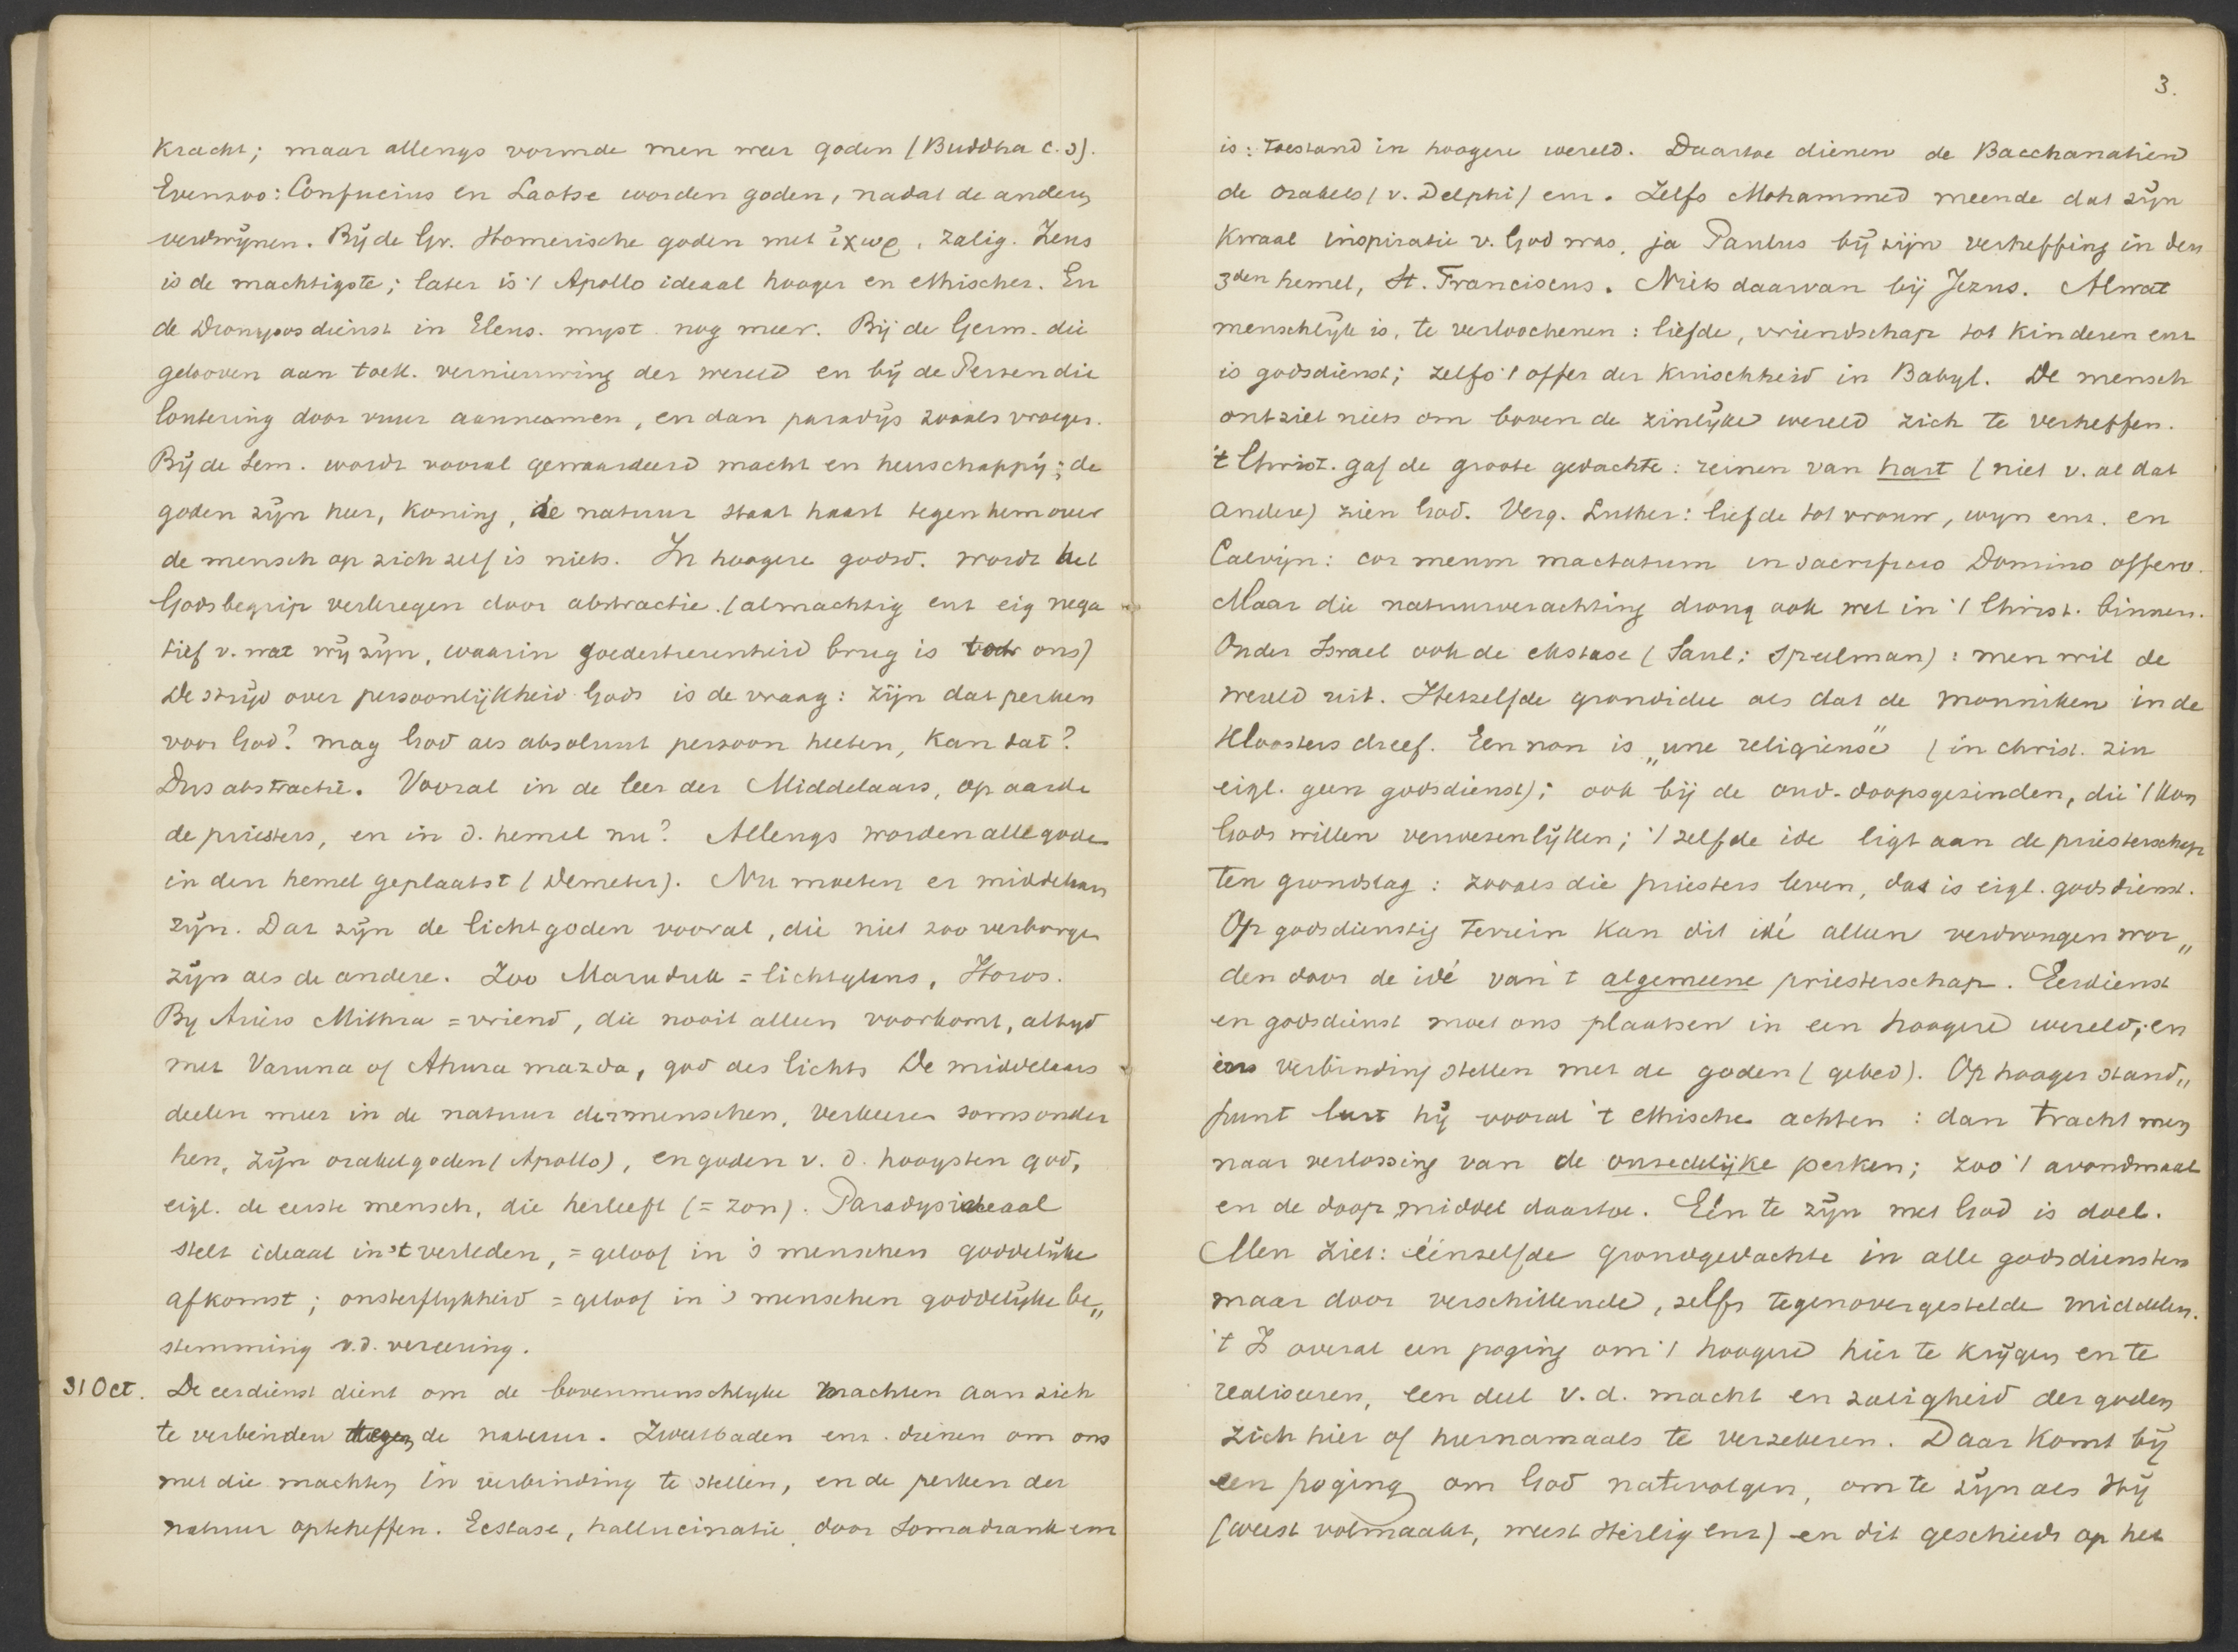 kracht; maar allengs vormde men weer goden (Buddha c.s).
Evenzoo: Confucius en Laotse worden goden, nadat de andere
verdwijnen. Bij de Gr. Homerische goden met ἰχωρ, zalig. Zeus
is de machtigste; later is 't Apollo ideaal hooger en ethischer. En
de Dionysosdienst in Eleus. myst. nog meer. Bij de Germ. die
gelooven aan toek. vernieuwing der wereld en bij de Perzen die
loutering door vuur aannamen, en dan paradijs zooals vroeger.
Bij de Sem. wordt vooral gewaardeerd macht en heerschappij; de
goden zijn heer, koning, de natuur staat haast tegenhemover
de mensch op zich zelf is niets. In hoogere godsd. wordt het
Godsbegrip verkregen door abstractie. (almachtig enz eig nega
tief v. wat wij zijn, waarin goedertierenheid brug is voor ons)
De strijd over persoonlijkheid Gods is de vraag: zijn dat perken
voor God? mag God als absoluut persoon heeten, kan dat?
Dus abstractie. Vooral in de leer der Middelaars, op aarde
de priesters, en in d. hemel nu? Allengs worden alle goden
in den hemel geplaatst (Demeter). Nu moeten er middelaars
zijn. Dat zijn de lichtgoden vooral, die niet zoo verborgen
zijn als de andere. Zoo Maruduk = lichtglans, Horos.
By Ariërs Mithra = vriend, die nooit alleen voorkomt, altyd
met Varuna of Ahura mazda, god des lichts De middelaars
deelen meer in de natuur der menschen, verkeeren soms onder
hen, zijn orakelgoden (Apollo), en goden v. d. hoogsten god,
eigl. de eerste mensch, die herleeft (= zon). Paradysideaal
stelt ideaal in 't verleden, = geloof in 's menschen goddelijke
afkomst; onsterflykheid = geloof in 's menschen goddelyke be„
stemming v.d. vereering.
31 Oct. De eerdienst dient om de bovenmenschlyke machten aan zich
te verbinden tegen de natuur. Zweetbaden enz. dienen om ons
met die machten in verbinding te stellen, en de perken der
natuur opteheffen. Ecstase, hallucinatie door Somadrank enz
3.
is: toestand in hoogere wereld. Daartoe dienen de Bacchanaliën
de orakels (v. Delphi) enz. Zelfs Mohammed meende dat zijn
kwaal inspiratie v. God was, ja Paulus bij zijn verheffing in den
3den hemel, St. Franciscus. Niets daarvan bij Jezus. Al wat
menschlijk is, te verloochenen: liefde, vriendschap tot kinderen enz
is godsdienst; zelfs 't offer der kuischheid in Babyl. De mensch
ontziet niets om boven de zinlijke wereld zich te verheffen.
't Christ. gaf de groote gedachte: reinen van hart (niet v. al dat
andere) zien God. Verg. Luther: liefde tot vrouw, wyn enz. en
Calvijn: cor meum mactatum in sacrificio Domino offero.
Maar die natuurverachting drong ook wel in 't Christ. binnen.
Onder Israel ook de ekstase (Saul; Speelman): men wil de
wereld uit. Hetzelfde grondidee als dat de monniken in de
Kloosters dreef. Een non is „une religieuse" (in christ. zin
eigl. geen godsdienst); ook bij de oud-doopsgezinden, die 't Kon
Gods willen verwezenlijken; 't zelfde ide ligt aan de priesterschap
ten grondslag: zooals die priesters leven, dat is eigl. godsdienst.
Op godsdienstig terrein kan dit idé alleen verdrongen wor„
den door de idé van 't algemeene priesterschap. Eerdienst
en godsdienst moet ons plaatsen in een hoogere wereld; en
ons verbinding stellen met de goden (gebed). Op hooger stand„
punt leert hij vooral 't ethische achten: dan tracht men
naar verlossing van de onzedelijke perken; zoo 't avondmaal
en de doop middel daartoe. Eén te zijn met God is doel.
Men ziet: éénzelfde grondgedachte in alle godsdiensten
maar door verschillende, zelfs tegenovergestelde middelen.
't Is overal een poging om 't hoogere hier te krijgen en te
realiseeren, een deel v.d. macht en zaligheid der goden
zich hier of hiernamaals te verzekeren. Daar komt bij
een poging om God natevolgen, om te zijn als Hij
(weest volmaakt, weest Heilig enz) en dit geschiedt op het